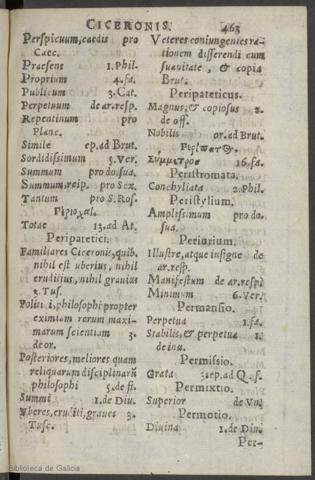 CICERONIS. 463
Perspicuum, caedis pro
Caec.
Praesens 1. Phil.
Proprium 4. fa.
Publicum 3. Cat.
Perpetuum de ar. resp.
Repentinum pro
Planc.
Simile ep. ad Brut.
Sordidissimum 5. Ver.
Summum pro do. sua.
Summum, resp. pro Sex.
Tantum pro S. Ros.
Totae 13. ad At.
Peripatetici.
Familiares Ciceronis, quib.
nihil est uberius, nihil
eruditius, nihil gravius
2. Tus.
Politi i. philosophi propter
eximiam rerum maxi-
marum scientiam 3.
de or.
Posteriores, meliores quam
reliquarum disciplinarũ
philosophi 5. de fi.
Summi 1. de Div.
Vberes, eruditi, graves 3.
Tusc.
Veteres coniungentes ra-
tionem disserendi cum
suavitate, & copia
Brut.
Peripateticus.
Magnus, & copiosus 2.
de off.
Nobilis or. ad Brut.
Σύμμετρος 16. fa.
Peristromata.
Conchyliata 2. Phil.
Peristylium.
Amplissimum pro do.
sua.
Periurium.
Illustre, atque insigne de
ar. resp.
Manifestum de ar. resp.
Minimum 6. Ver.
Permansio.
Perpetua 1. fa.
Stabilis, & perpetua 1.
de inu.
Permissio.
Grata 3. ep. ad Q. f.
Permixtio.
Superior de Vn.
Permotio.
Divina 1. de Div.
Per-
Biblioteca de Galicia